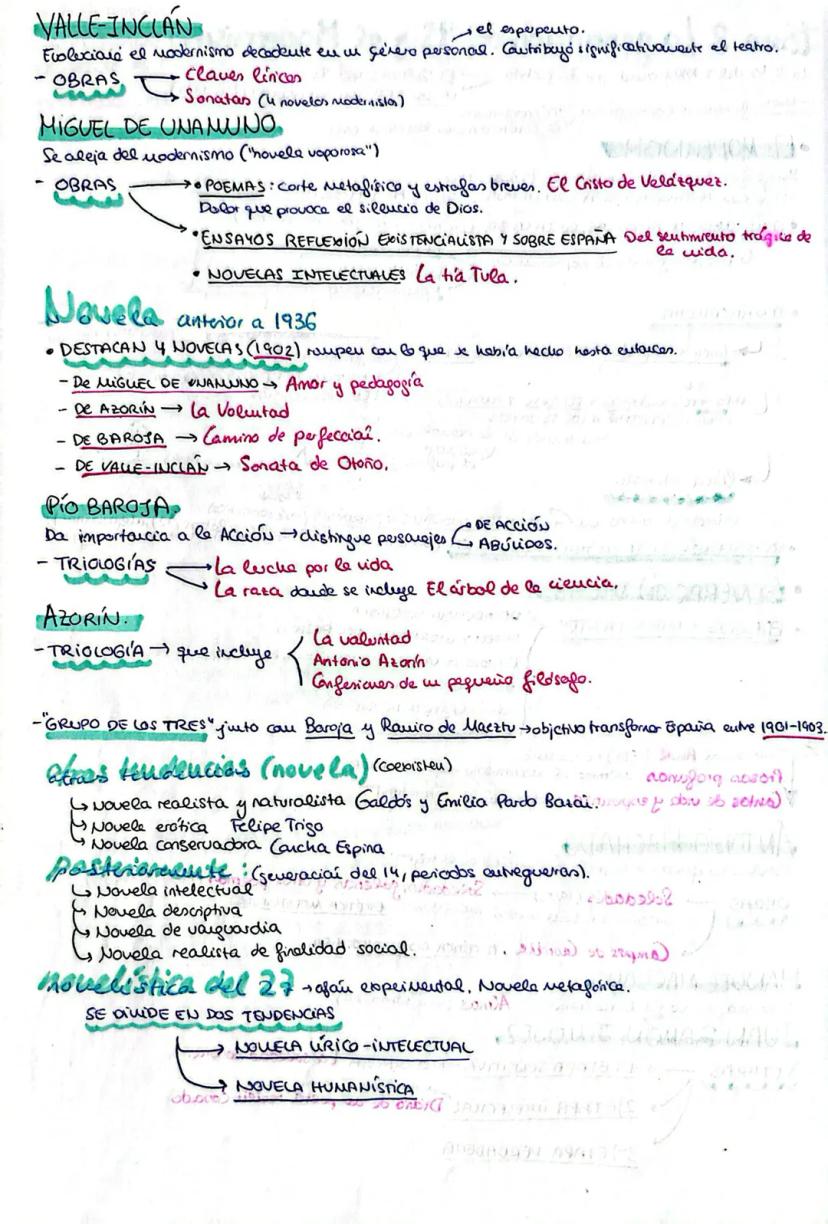 VALLE-INCLÁN
→ el esperpento.
Evolucionó el modernismo decadente en un género personal. Contribuyó significativamente al teatro.
- OBRAS → Claves líricas
→ Sonatas (4 novelas modernista)
MIGUEL DE UNAMUNO
Se aleja del modernismo ("novela vaporosa")
- OBRAS → • POEMAS: corte metafísico y estrofas breves. El Cristo de Velázquez.
Dolor que provoca el silencio de Dios.
• ENSAYOS REFLEXIÓN EXISTENCIALISTA Y SOBRE ESPAÑA Del sentimiento trágico de
la vida.
• NOVELAS INTELECTUALES La tía Tula.
Novela anterior a 1936
• DESTACAN 4 NOVELAS (1902) rompen con lo que se había hecho hasta entonces.
- De MIGUEL DE UNAMUNO → Amor y pedagogía
- DE AZORÍN → La Voluntad
- DE BAROJA → Camino de perfección.
- DE VALLE-INCLÁN → Sonata de Otoño.
PÍO BAROJA.
Da importancia a la Acción → distingue personajes → DE ACCIÓN
→ ABÚLICOS.
- TRIOLOGÍAS → La lucha por la vida
→ La raza donde se incluye El árbol de la ciencia.
AZORÍN.
- TRIOLOGÍA → que incluye
La voluntad
Antonio Azorín
Confesiones de un pequeño filósofo.
- "GRUPO DE LOS TRES" junto con Baroja y Ramiro de Maeztu → objetivo transformar España entre 1901-1903.
otras tendencias (novela) (coexisten)
↳ Novela realista y naturalista Galdós y Emilia Pardo Bazán.
↳ Novela erótica Felipe Trigo
↳ Novela conservadora Concha Espina
Posteriormente: (generación del 14, periodos entreguerras).
↳ Novela intelectual
↳ Novela descriptiva
↳ Novela de vanguardia
↳ Novela realista de finalidad social.
novelística del 27 → afán experimental. Novela metafórica.
SE DIVIDE EN DOS TENDENCIAS
→ NOVELA LÍRICO-INTELECTUAL
→ NOVELA HUMANÍSTICA